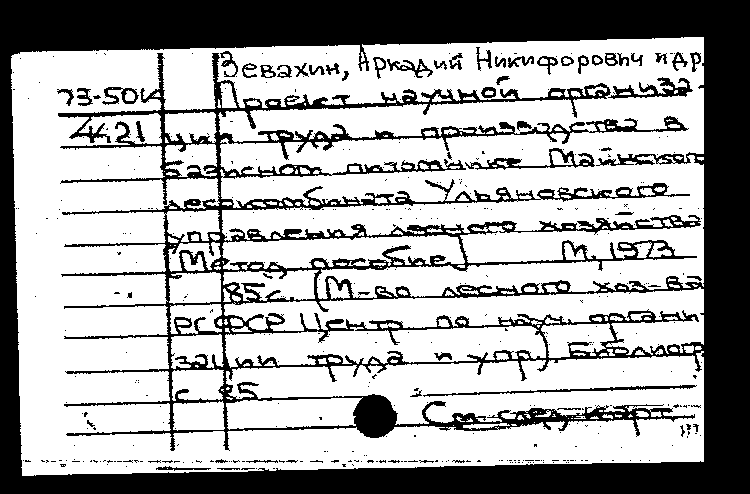 Зевахин, Аркадий Никифорович и др.
73-50К Проект научной организа-
4421 ции труда и производства в
базисном питомнике Майнского
лесокомбината Ульяновского
управления лесного хозяйства
[Метод. пособие]. М., 1973
85с. (М-во лесного хоз-ва
РСФСР Центр по науч. органи-
зации труда и упр.). Библиогр
с. 85
См. след. карт.